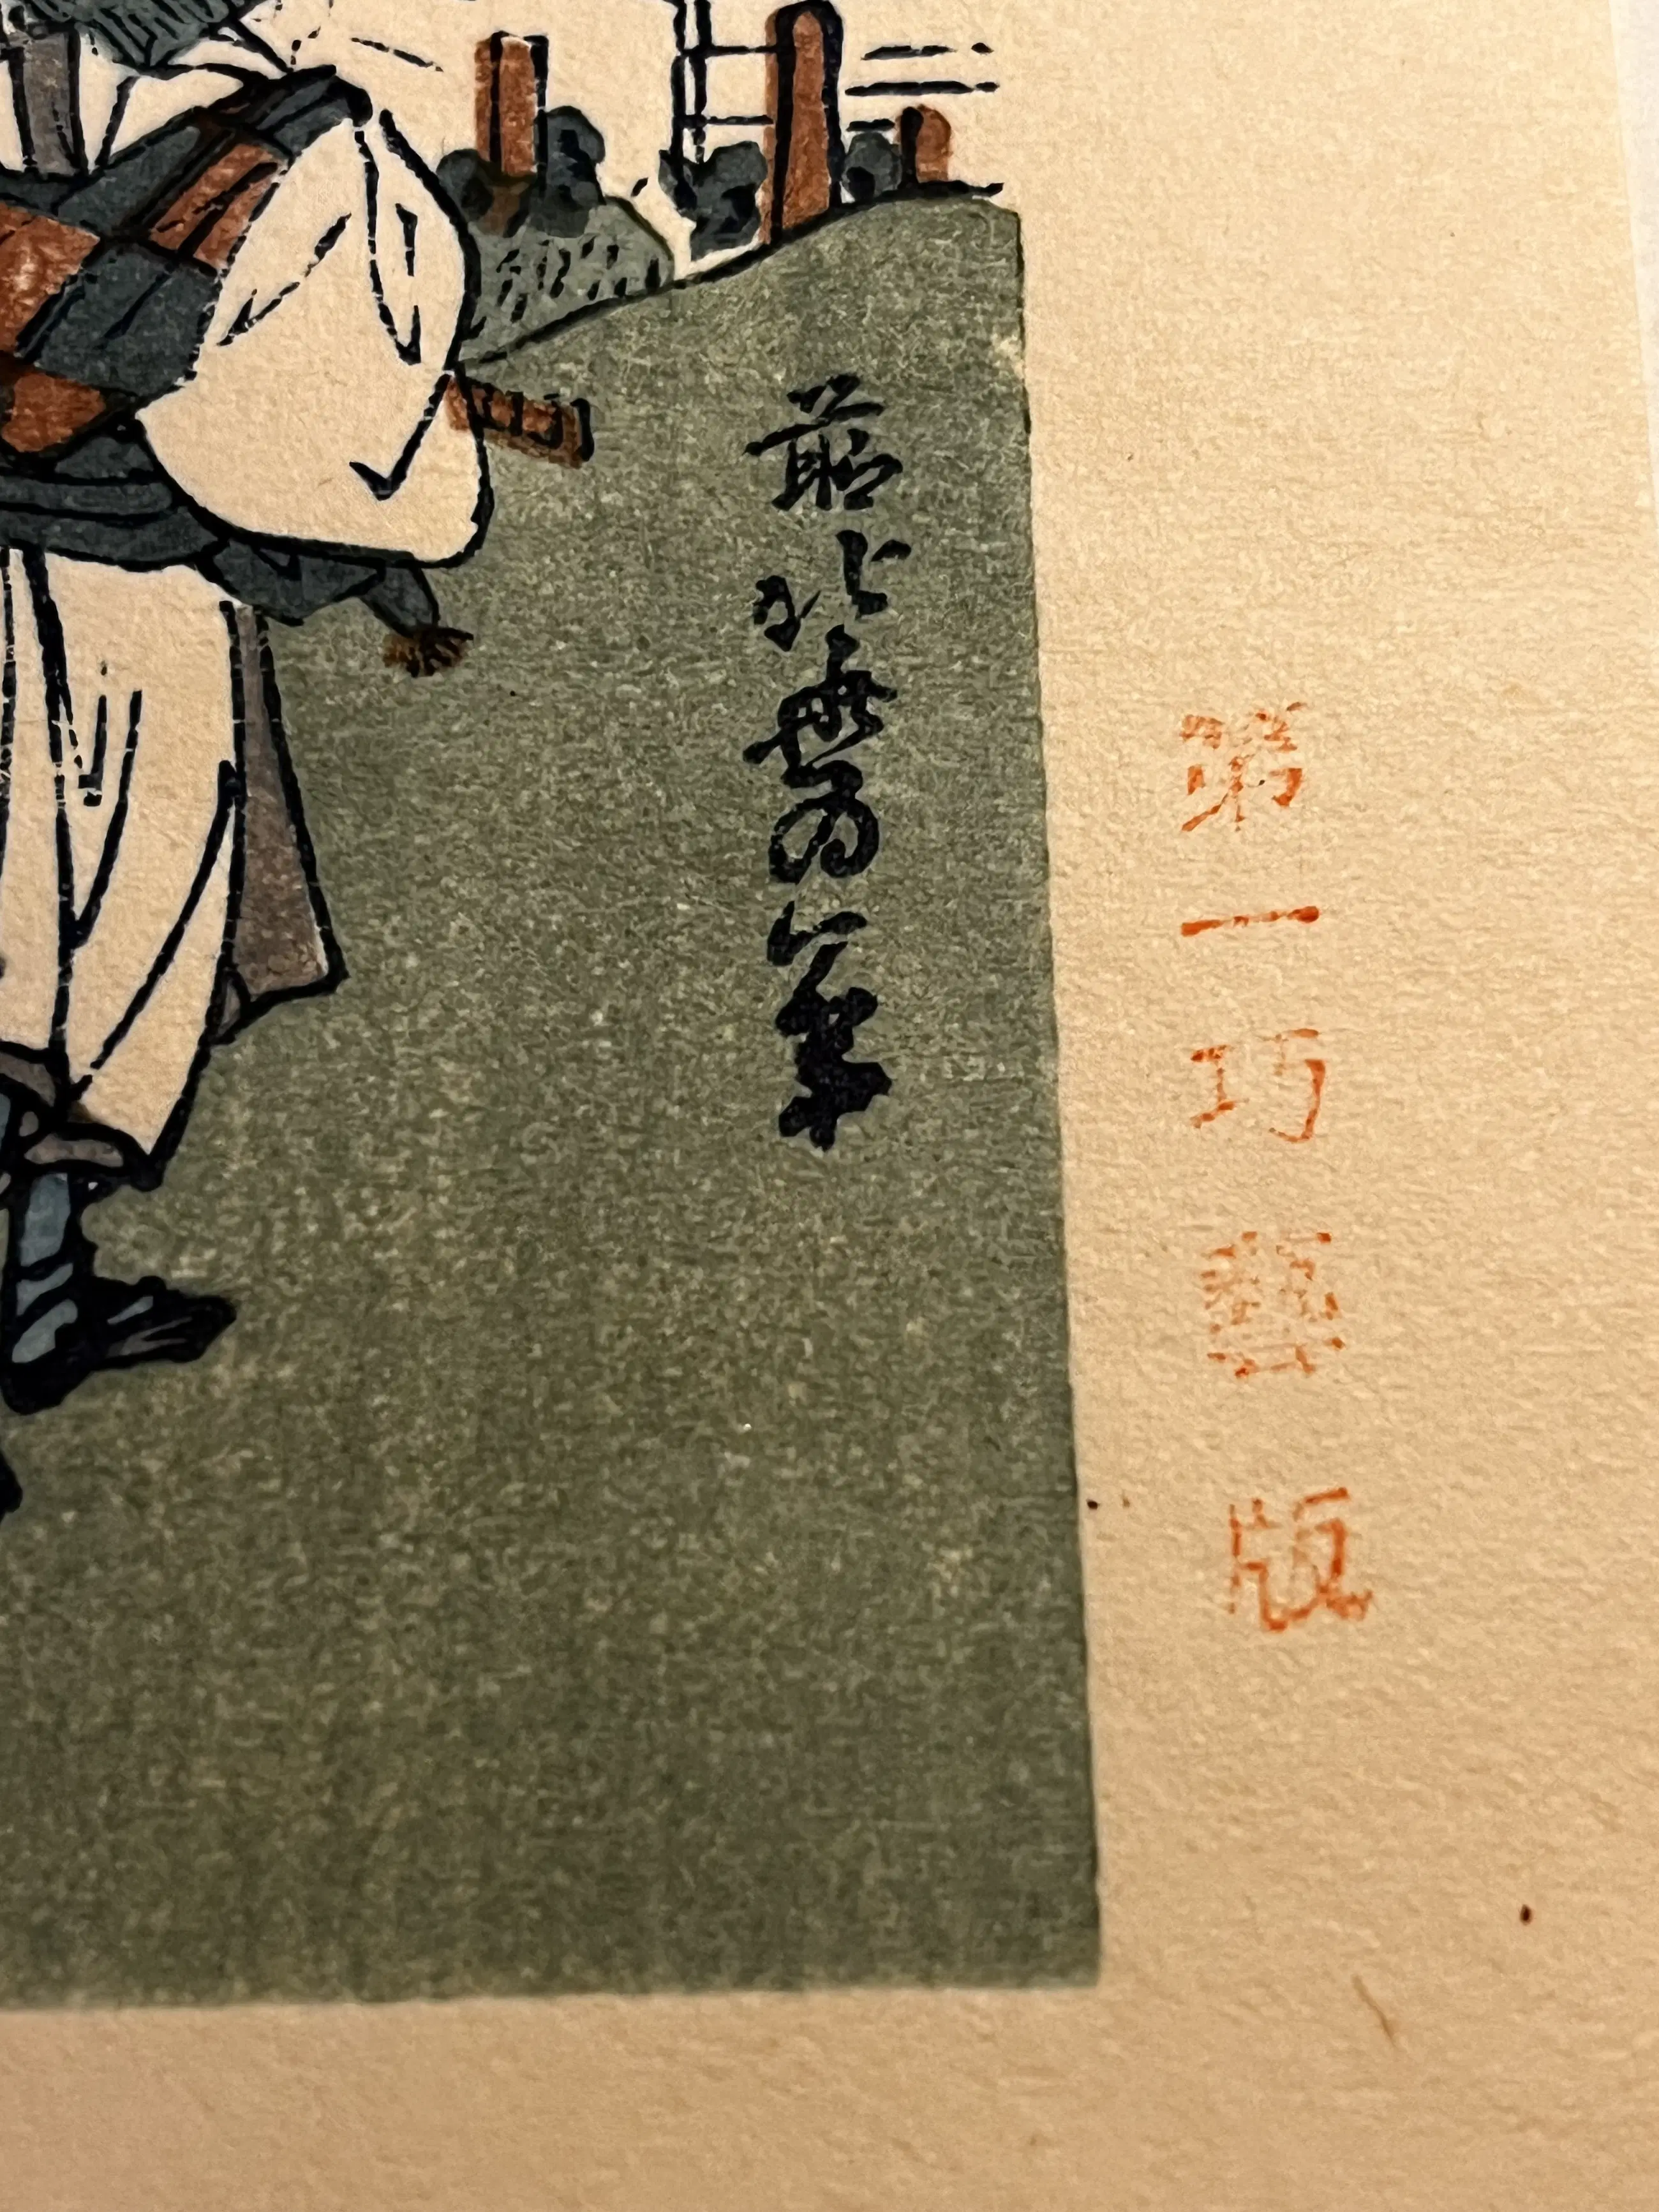 第一巧藝版
前北斎為一筆